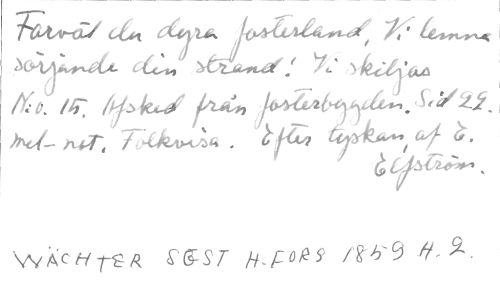 Farväl du dyra fosterland, Vi lemna
sörjande din strand! Vi skiljas
N:o. 15. Afsked från fosterbygden. Sid 22.
mel-not. Folkvisa. Efter tyskan, af E.
Elfström.
WÄCHTER SGST H.FORS 1859 H.2.